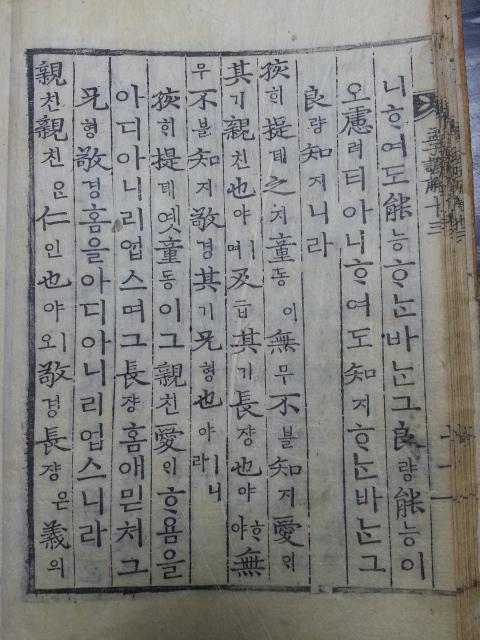 孟子諺解十三
니ᄒᆞ여도能능ᄒᆞᄂᆞᆫ바ᄂᆞᆫ그良량能능이
오慮려티아니ᄒᆞ여도知지ᄒᆞᄂᆞᆫ바ᄂᆞᆫ그
良량知지니라
孩ᄒᆡ提뎨之지童동이無무不불知지愛ᄋᆡ
其기親친也야ㅣ며及급其기長쟝也야ᄒᆞ야無
무不불知지敬경其기兄형也야ㅣ니라
孩ᄒᆡ提뎨옛童동이그親친愛ᄋᆡᄒᆞ욤을
아디아니리업스며그長쟝홈애믿처그
兄형敬경홈을아디아니리업스니라
親친親친은仁인也야ㅣ오敬경長쟝은義의